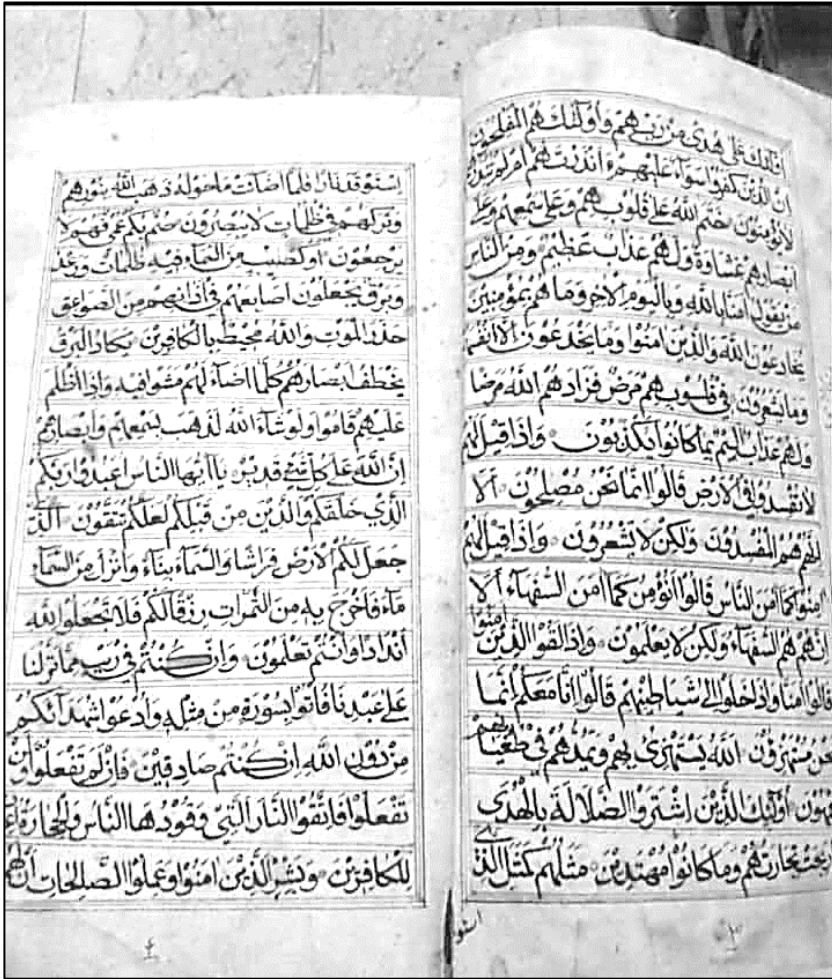 اولئك على هدى من ربهم واولئك هم المفلحون
ان الذين كفروا سواء عليهم ءانذرتهم ام لم تنذرهم
لا يؤمنون ختم الله على قلوبهم وعلى سمعهم وعلى
ابصارهم غشاوة ولهم عذاب عظيم ومن الناس
من يقول امنا بالله وباليوم الاخر وما هم بمؤمنين
يخادعون الله والذين امنوا وما يخدعون الا انفسهم
وما يشعرون في قلوبهم مرض فزادهم الله مرضا
ولهم عذاب اليم بما كانوا يكذبون واذا قيل لهم
لا تفسدوا في الارض قالوا انما نحن مصلحون الا
انهم هم المفسدون ولكن لا يشعرون واذا قيل لهم
امنوا كما امن الناس قالوا انؤمن كما امن السفهاء الا
انهم هم السفهاء ولكن لا يعلمون واذا لقوا الذين امنوا
قالوا امنا واذا خلوا الى شياطينهم قالوا انا معكم انما
نحن مستهزؤن الله يستهزئ بهم ويمدهم في طغيانهم
يعمهون اولئك الذين اشتروا الضلالة بالهدى
فما ربحت تجارتهم وما كانوا مهتدين مثلهم كمثل الذي
استو
٣
استوقد نارا فلما اضاءت ما حوله ذهب الله بنورهم
وتركهم في ظلمات لا يبصرون صم بكم عمي فهم لا
يرجعون او كصيب من السماء فيه ظلمات ورعد
وبرق يجعلون اصابعهم في اذانهم من الصواعق
حذر الموت والله محيط بالكافرين يكاد البرق
يخطف ابصارهم كلما اضاء لهم مشوا فيه واذا اظلم
عليهم قاموا ولو شاء الله لذهب بسمعهم وابصارهم
ان الله على كل شئ قدير يا ايها الناس اعبدوا ربكم
الذي خلقكم والذين من قبلكم لعلكم تتقون الذي
جعل لكم الارض فراشا والسماء بناء وانزل من السماء
ماء فاخرج به من الثمرات رزقا لكم فلا تجعلوا لله
اندادا وانتم تعلمون وان كنتم في ريب مما نزلنا
على عبدنا فاتوا بسورة من مثله وادعوا شهداءكم
من دون الله ان كنتم صادقين فان لم تفعلوا ولن
تفعلوا فاتقوا النار التي وقودها الناس والحجارة اعدت
للكافرين وبشر الذين امنوا وعملوا الصالحات ان لهم
٤